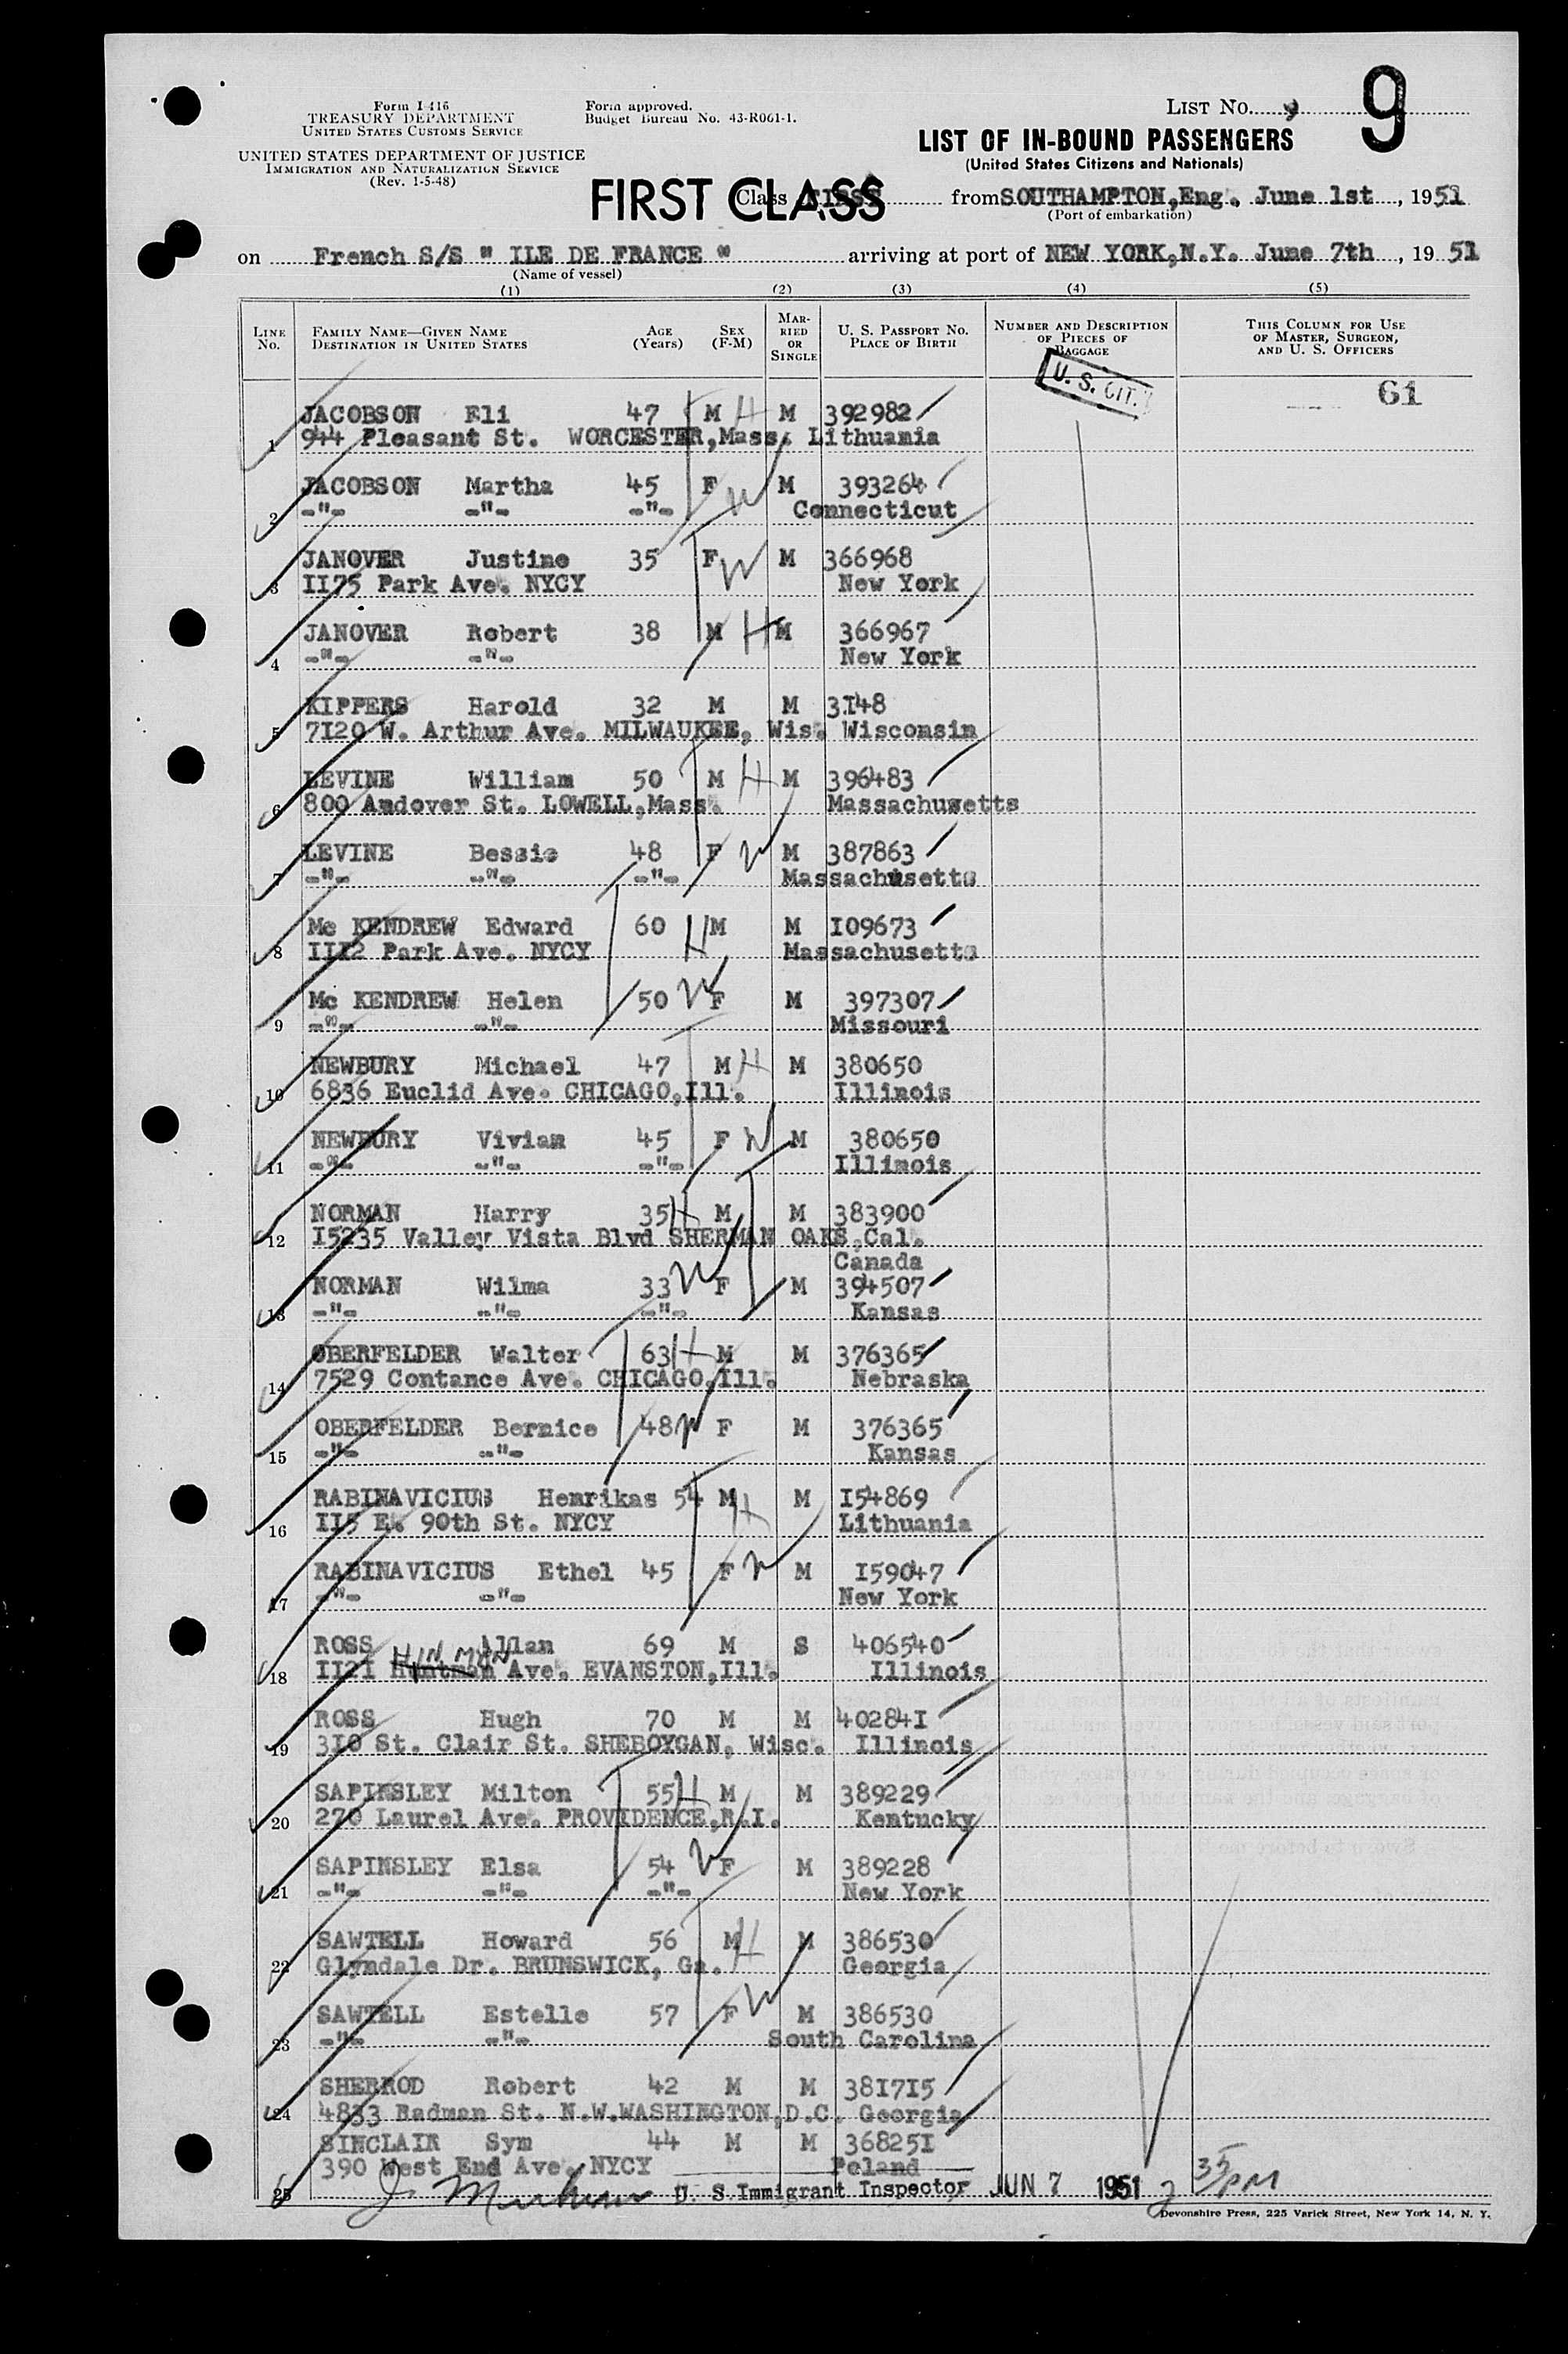 Form I-416
TREASURY DEPARTMENT
UNITED STATES CUSTOMS SERVICE
UNITED STATES DEPARTMENT OF JUSTICE
IMMIGRATION AND NATURALIZATION SERVICE
(Rev. 1-5-48)
Form approved.
Budget Bureau No. 43-R061-1.
LIST NO. 9
9
LIST OF IN-BOUND PASSENGERS
(United States Citizens and Nationals)
FIRST CLASS
Class FIRST from SOUTHAMPTON,Eng. June 1st, 1951
(Port of embarkation)
on French S/S " ILE DE FRANCE " arriving at port of NEW YORK,N.Y. June 7th, 19 51
(Name of vessel)
(1) (2) (3) (4) (5)
LINE No. FAMILY NAME—GIVEN NAME DESTINATION IN UNITED STATES AGE (Years) SEX (F-M) MARRIED OR SINGLE U. S. PASSPORT NO. PLACE OF BIRTH NUMBER AND DESCRIPTION OF PIECES OF BAGGAGE THIS COLUMN FOR USE OF MASTER, SURGEON, AND U. S. OFFICERS
U. S. CIT.
61
JACOBSON Eli 47 M H M 392982
1 944 Pleasant St. WORCESTER,Mass. Lithuania
JACOBSON Martha 45 F W M 393264
2 -"- -"- -"- Connecticut
JANOVER Justine 35 F W M 366968
3 II75 Park Ave. NYCY New York
JANOVER Robert 38 M H M 366967
4 -"- -"- New York
KIPPERS Harold 32 M M 3I48
5 7I20 W. Arthur Ave. MILWAUKEE, Wis. Wisconsin
LEVINE William 50 M H M 396483
6 800 Andover St. LOWELL,Mass. Massachusetts
LEVINE Bessie 48 F W M 387863
7 -"- -"- -"- Massachusetts
Mc KENDREW Edward 60 H M M I09673
8 III2 Park Ave. NYCY Massachusetts
Mc KENDREW Helen 50 W F M 397307
9 -"- -"- Missouri
NEWBURY Michael 47 M H M 380650
10 6836 Euclid Ave. CHICAGO,Ill. Illinois
NEWBURY Vivian 45 F W M 380650
11 -"- -"- -"- Illinois
NORMAN Harry 35 H M M 383900
12 I5235 Valley Vista Blvd SHERMAN OAKS,Cal.
Canada
NORMAN Wilma 33 W F M 394507
13 -"- -"- -"- Kansas
OBERFELDER Walter 63 H M M 376365
14 7529 Contance Ave. CHICAGO,Ill. Nebraska
OBERFELDER Bernice 48 W F M 376365
15 -"- -"- Kansas
RABINAVICIUS Henrikas 54 M H M I54869
16 II5 E. 90th St. NYCY Lithuania
RABINAVICIUS Ethel 45 F W M I59047
17 -"- -"- New York
ROSS Allan 69 M S 406540
HINMAN
18 II2I Huntman Ave. EVANSTON,Ill. Illinois
ROSS Hugh 70 M M 40284I
19 3I0 St. Clair St. SHEBOYGAN, Wisc. Illinois
SAPINSLEY Milton 55 H M M 389229
20 270 Laurel Ave. PROVIDENCE,R.I. Kentucky
SAPINSLEY Elsa 54 W F M 389228
21 -"- -"- -"- New York
SAWTELL Howard 56 M H M 386530
22 Glyndale Dr. BRUNSWICK, Ga. Georgia
SAWTELL Estelle 57 F W M 386530
23 -"- -"- South Carolina
SHERROD Robert 42 M M 38I7I5
24 4833 Radman St. N.W.WASHINGTON,D.C. Georgia
SINCLAIR Sym 44 M M 36825I
390 West End Ave. NYCY Poland
25 U. S. Immigrant Inspector JUN 7 1951 2 35 PM
Devonshire Press, 225 Varick Street, New York 14, N. Y.